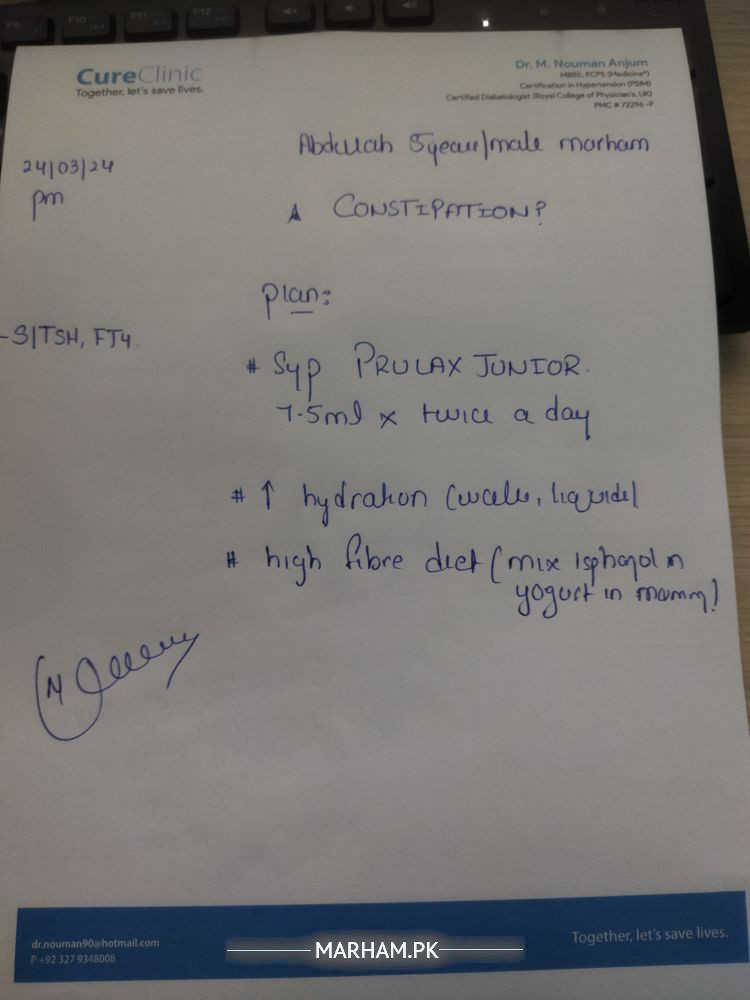 F9 F10 F11 F12
CureClinic
Together, let's save lives.
Dr. M. Nouman Anjum
MBBS, FCPS (Medicine*)
Certification in Hypertension (PSIM)
Certified Diabetologist (Royal College of Physician's, UK)
PMC # 72296 -P
Abdullah 5year/male marham
24/03/24
pm
CONSTIPATION?
plan:
-S/TSH, FT4.
# Syp PRULAX JUNIOR.
7.5ml x twice a day
# ↑ hydration (water, liquids)
# high fibre diet (mix isphagol n
yogurt in morning)
dr.nouman90@hotmail.com
P +92 327 9348008
MARHAM.PK
Together, let's save lives.